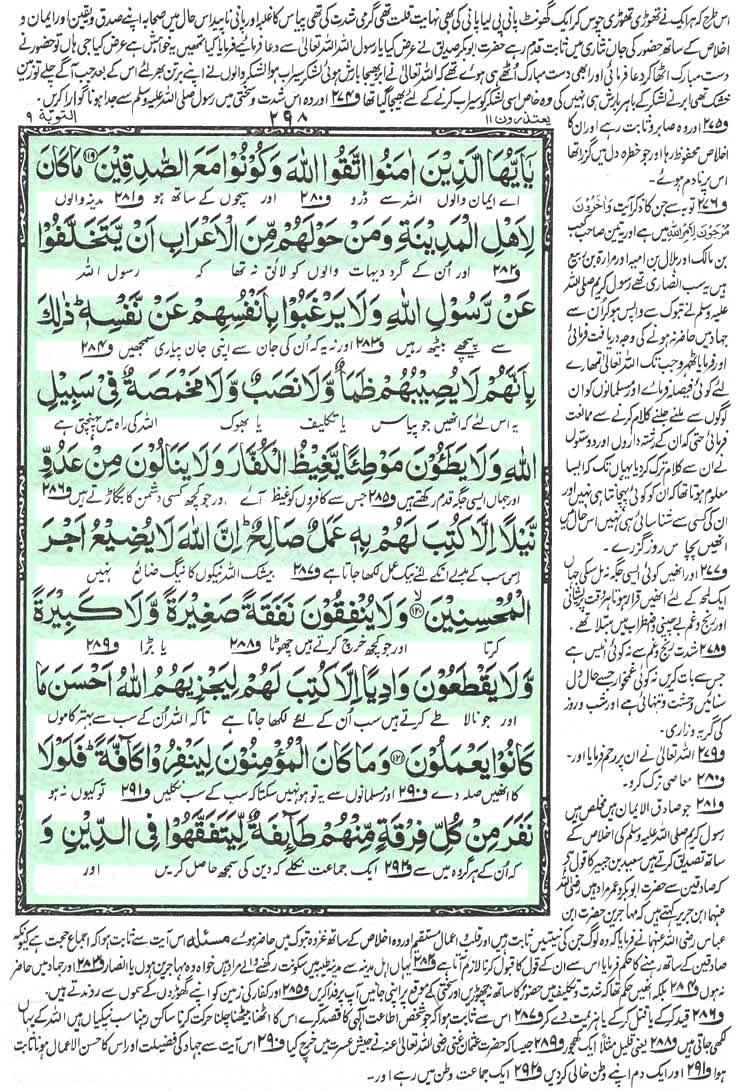 اس طرح کہ ہر ایک نے تھوڑی تھوڑی چوس کر ایک گھونٹ پانی پی لیا پانی کی بھی نہایت قلت تھی گرمی شدت کی تھی پیاس کا غلبہ اور پانی ناپید اس حال میں صحابہ اپنے صدق و یقین اور ایمان و
اخلاص کے ساتھ حضور کی جاں نثاری میں ثابت قدم رہے حضرت ابوبکر صدیق نے عرض کیا یا رسول اللہ اللہ تعالیٰ سے دعا فرمائیے فرمایا کیا تمہیں یہ خواہش ہے عرض کیا جی ہاں تو حضور نے
دست مبارک اٹھا کر دعا فرمائی اور ابھی دست مبارک اٹھے ہی ہوئے تھے کہ اللہ تعالیٰ نے ابر بھیجا بارش ہوئی لشکر سیراب ہوا لشکر والوں نے اپنے برتن بھر لئے اس کے بعد جب آگے چلے تو زمین
خشک تھی ابر نے لشکر کے باہر بارش ہی نہیں کی وہ خاص اسی لشکر کو سیراب کرنے کے لئے بھیجا گیا تھا و۲۷۴ اور وہ اس شدت و سختی میں رسول صلی اللہ علیہ وسلم سے جدا ہونا گوارا کریں
يعتذرون ۱۱
۲۹۸
التوبة ۹
يٰۤاَيُّهَا الَّذِيْنَ اٰمَنُوا اتَّقُوا اللّٰهَ وَكُوْنُوْا مَعَ الصّٰدِقِيْنَ ﴿۱۱۹﴾ مَا كَانَ
اے ایمان والوں اللہ سے ڈرو و۲۸۰ اور سچوں کے ساتھ ہو و۲۸۱ مدینہ والوں
لِاَهْلِ الْمَدِيْنَةِ وَمَنْ حَوْلَهُمْ مِّنَ الْاَعْرَابِ اَنْ يَّتَخَلَّفُوْا
و۲۸۲ اور اُن کے گرد دیہات والوں کو لائق نہ تھا کہ رسول اللہ
عَنْ رَّسُوْلِ اللّٰهِ وَلَا يَرْغَبُوْا بِاَنْفُسِهِمْ عَنْ نَّفْسِهٖ ؕ ذٰلِكَ
سے پیچھے بیٹھ رہیں و۲۸۳ اور نہ یہ کہ اُن کی جان سے اپنی جان پیاری سمجھیں و۲۸۴
بِاَنَّهُمْ لَا يُصِيْبُهُمْ ظَمَاٌ وَّلَا نَصَبٌ وَّلَا مَخْمَصَةٌ فِيْ سَبِيْلِ
یہ اس لئے کہ انھیں جو پیاس یا تکلیف یا بھوک اللہ کی راہ میں پہنچتی ہے
اللّٰهِ وَلَا يَطَـُٔوْنَ مَوْطِئًا يَّغِيْظُ الْكُفَّارَ وَلَا يَنَالُوْنَ مِنْ عَدُوٍّ
اور جہاں ایسی جگہ قدم رکھتے ہیں و۲۸۵ جس سے کافروں کو غیظ آئے اور جو کچھ کسی دشمن کا بگاڑتے ہیں و۲۸۶
نَّيْلًا اِلَّا كُتِبَ لَهُمْ بِهٖ عَمَلٌ صَالِحٌ ؕ اِنَّ اللّٰهَ لَا يُضِيْعُ اَجْرَ
اس سب کے بدلے ان کے لئے نیک عمل لکھا جاتا ہے و۲۸۷ بیشک اللہ نیکوں کا نیگ ضائع نہیں
الْمُحْسِنِيْنَ ﴿۱۲۰﴾ وَلَا يُنْفِقُوْنَ نَفَقَةً صَغِيْرَةً وَّلَا كَبِيْرَةً
کرتا اور جو کچھ خرچ کرتے ہیں چھوٹا و۲۸۸ یا بڑا و۲۸۹
وَّلَا يَقْطَعُوْنَ وَادِيًا اِلَّا كُتِبَ لَهُمْ لِيَجْزِيَهُمُ اللّٰهُ اَحْسَنَ مَا
اور جو نالا طے کرتے ہیں سب اُن کے لئے لکھا جاتا ہے تاکہ اللہ اُن کے سب سے بہتر کاموں
كَانُوْا يَعْمَلُوْنَ ﴿۱۲۱﴾ وَمَا كَانَ الْمُؤْمِنُوْنَ لِيَنْفِرُوْا كَآفَّةً ؕ فَلَوْلَا
کا انھیں صلہ دے و۲۹۰ اور مسلمانوں سے یہ تو ہو نہیں سکتا کہ سب کے سب نکلیں و۲۹۱ تو کیوں نہ ہو
نَفَرَ مِنْ كُلِّ فِرْقَةٍ مِّنْهُمْ طَآئِفَةٌ لِّيَتَفَقَّهُوْا فِي الدِّيْنِ وَ
کہ اُن کے ہر گروہ میں سے و۲۹۲ ایک جماعت نکلے کہ دین کی سمجھ حاصل کریں اور
و۲۷۵ اور وہ صابر و ثابت رہے اور ان کا
اخلاص محفوظ رہا اور جو خطرہ دل میں گزرا تھا
اس پر نادم ہوئے۔
و۲۷۶ توبہ سے جن کا ذکر آیت وَاٰخَرُوْنَ
مُرْجَوْنَ لِاَمْرِ اللّٰهِ میں ہے اور یہ تین صاحب کعب
بن مالک اور ہلال بن امیہ اور مرارہ بن ربیع
ہیں یہ سب انصاری تھے رسول کریم صلی اللہ
علیہ وسلم نے تبوک سے واپس ہو کر اُن سے
جہاد میں حاضر نہ ہونے کی وجہ دریافت فرمائی
اور فرمایا ٹھہرو جب تک اللہ تعالیٰ تمہارے
لئے کوئی فیصلہ فرمائے اور مسلمانوں کو ان
لوگوں سے ملنے جلنے کلام کرنے سے ممانعت
فرمائی حتی کہ ان کے رشتہ داروں اور دوستوں
نے ان سے کلام ترک کر دیا یہاں تک کہ ایسا
معلوم ہوتا تھا کہ ان کو کوئی پہچانتا ہی نہیں اور
ان کی کسی سے شناسائی ہی نہیں اس حال میں
انھیں پچاس روز گزرے۔
و۲۷۷ اور انھیں کوئی ایسی جگہ نہ مل سکی جہاں
ایک لمحہ کے لئے انھیں قرار ہوتا ہر وقت پریشانی
اور رنج و غم بے چینی و اضطراب میں مبتلا تھے۔
و۲۷۸ شدت رنج و غم سے نہ کوئی انیس ہے
جس سے بات کریں نہ کوئی غمخوار جسے حال دل
سنائیں وحشت و تنہائی ہے اور شب و روز
کی گریہ و زاری۔
و۲۷۹ اللہ تعالیٰ نے ان پر رحم فرمایا اور۔
و۲۸۰ معاصی ترک کرو۔
و۲۸۱ جو صادق الایمان ہیں مخلص ہیں
رسول کریم صلی اللہ علیہ وسلم کی اخلاص کے
ساتھ تصدیق کرتے ہیں سعید بن جبیر کا قول ہے
کہ صادقین سے حضرت ابوبکر و عمر مراد ہیں رضی اللہ
عنہما ابن جریر کہتے ہیں کہ مہاجرین حضرت ابن
عباس رضی اللہ عنہما نے فرمایا کہ وہ لوگ جن کی نیتیں ثابت ہیں اور قلب و اعمال مستقیم اور وہ اخلاص کے ساتھ غزوہ تبوک میں حاضر ہوئے مسئلہ اس آیت سے ثابت ہوا کہ اجماع حجت ہے کیونکہ
صادقین کے ساتھ رہنے کا حکم فرمایا اس سے ان کے قول کا قبول کرنا لازم آتا ہے و۲۸۲ یہاں اہل مدینہ سے مدینہ طیبہ میں سکونت رکھنے والے مراد ہیں خواہ وہ مہاجرین ہوں یا انصار و۲۸۳ اور جہاد میں حاضر
نہ ہوں و۲۸۴ بلکہ انھیں حکم تھا کہ شدت و تکلیف میں حضور کا ساتھ نہ چھوڑیں اور سختی کے موقع پر اپنی جانیں آپ پر فدا کریں و۲۸۵ اور کفار کی زمین کو اپنے گھوڑوں کے سموں سے روندتے ہیں۔
و۲۸۶ قید کر کے یا قتل کر کے یا ہزیمت دے کر و۲۸۷ اس سے ثابت ہوا کہ جو شخص اطاعت الٰہی کا قصد کرے اس کا اٹھنا بیٹھنا چلنا حرکت کرنا ساکن رہنا سب نیکیاں ہیں اللہ کے یہاں
لکھی جاتی ہیں و۲۸۸ یعنی قلیل مثلاً ایک کھجور و۲۸۹ جیسا کہ حضرت عثمان غنی رضی اللہ تعالیٰ عنہ نے جیش عسرت میں خرچ کیا و۲۹۰ اس آیت سے جہاد کی فضیلت اور اس کا احسن الاعمال ہونا ثابت
ہوا و۲۹۱ اور ایک دم اپنے وطن خالی کر دیں و۲۹۲ ایک جماعت وطن میں رہے اور۔